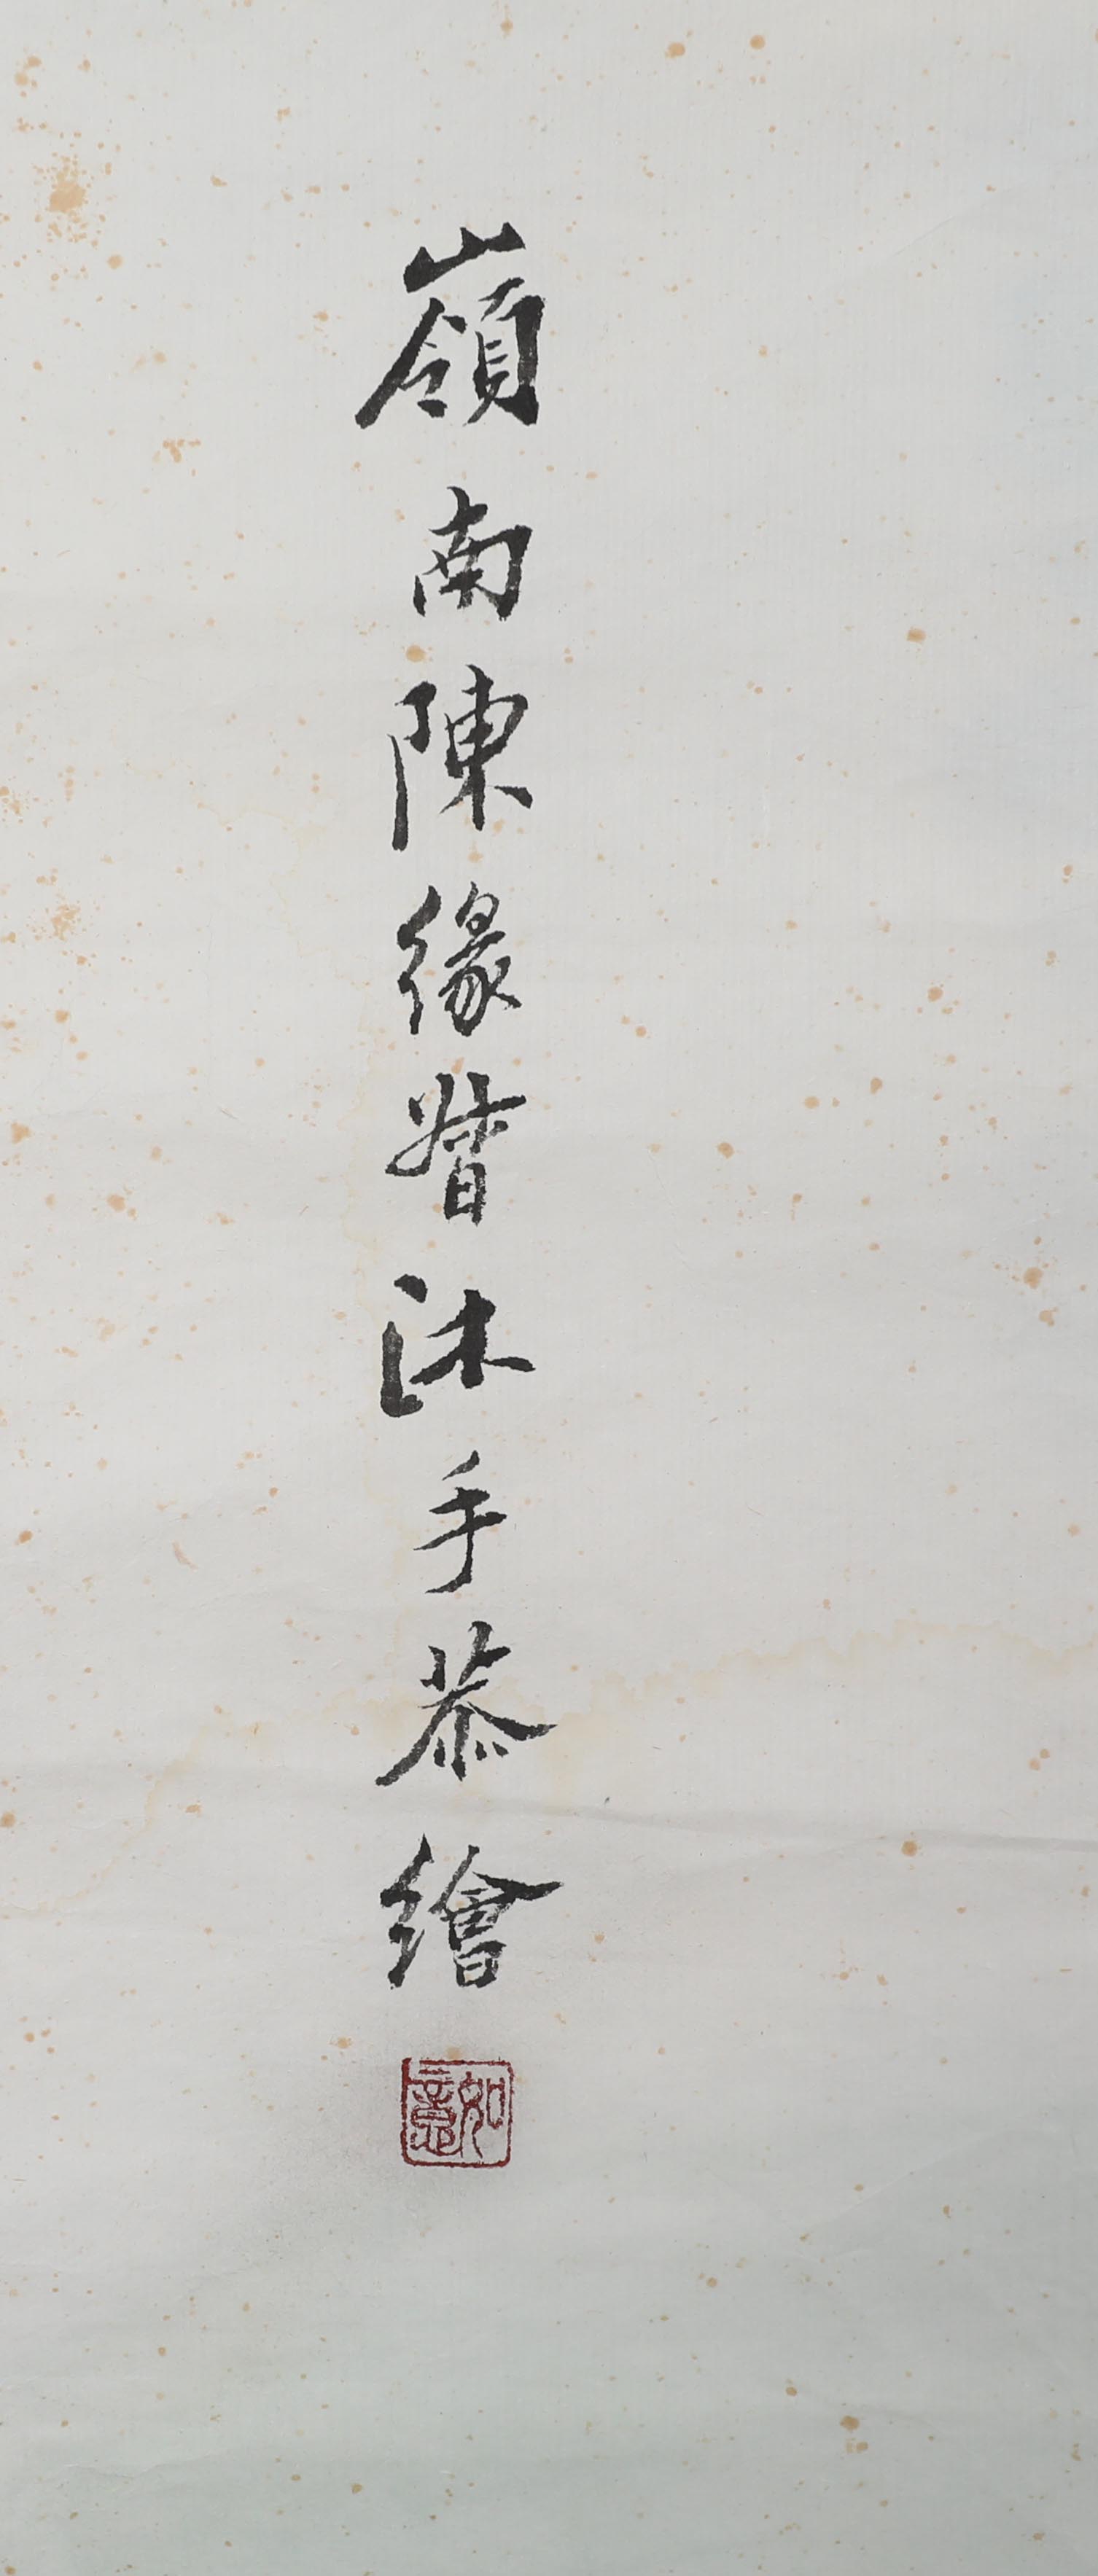 嶺南陳緣督沐手恭繪
如意